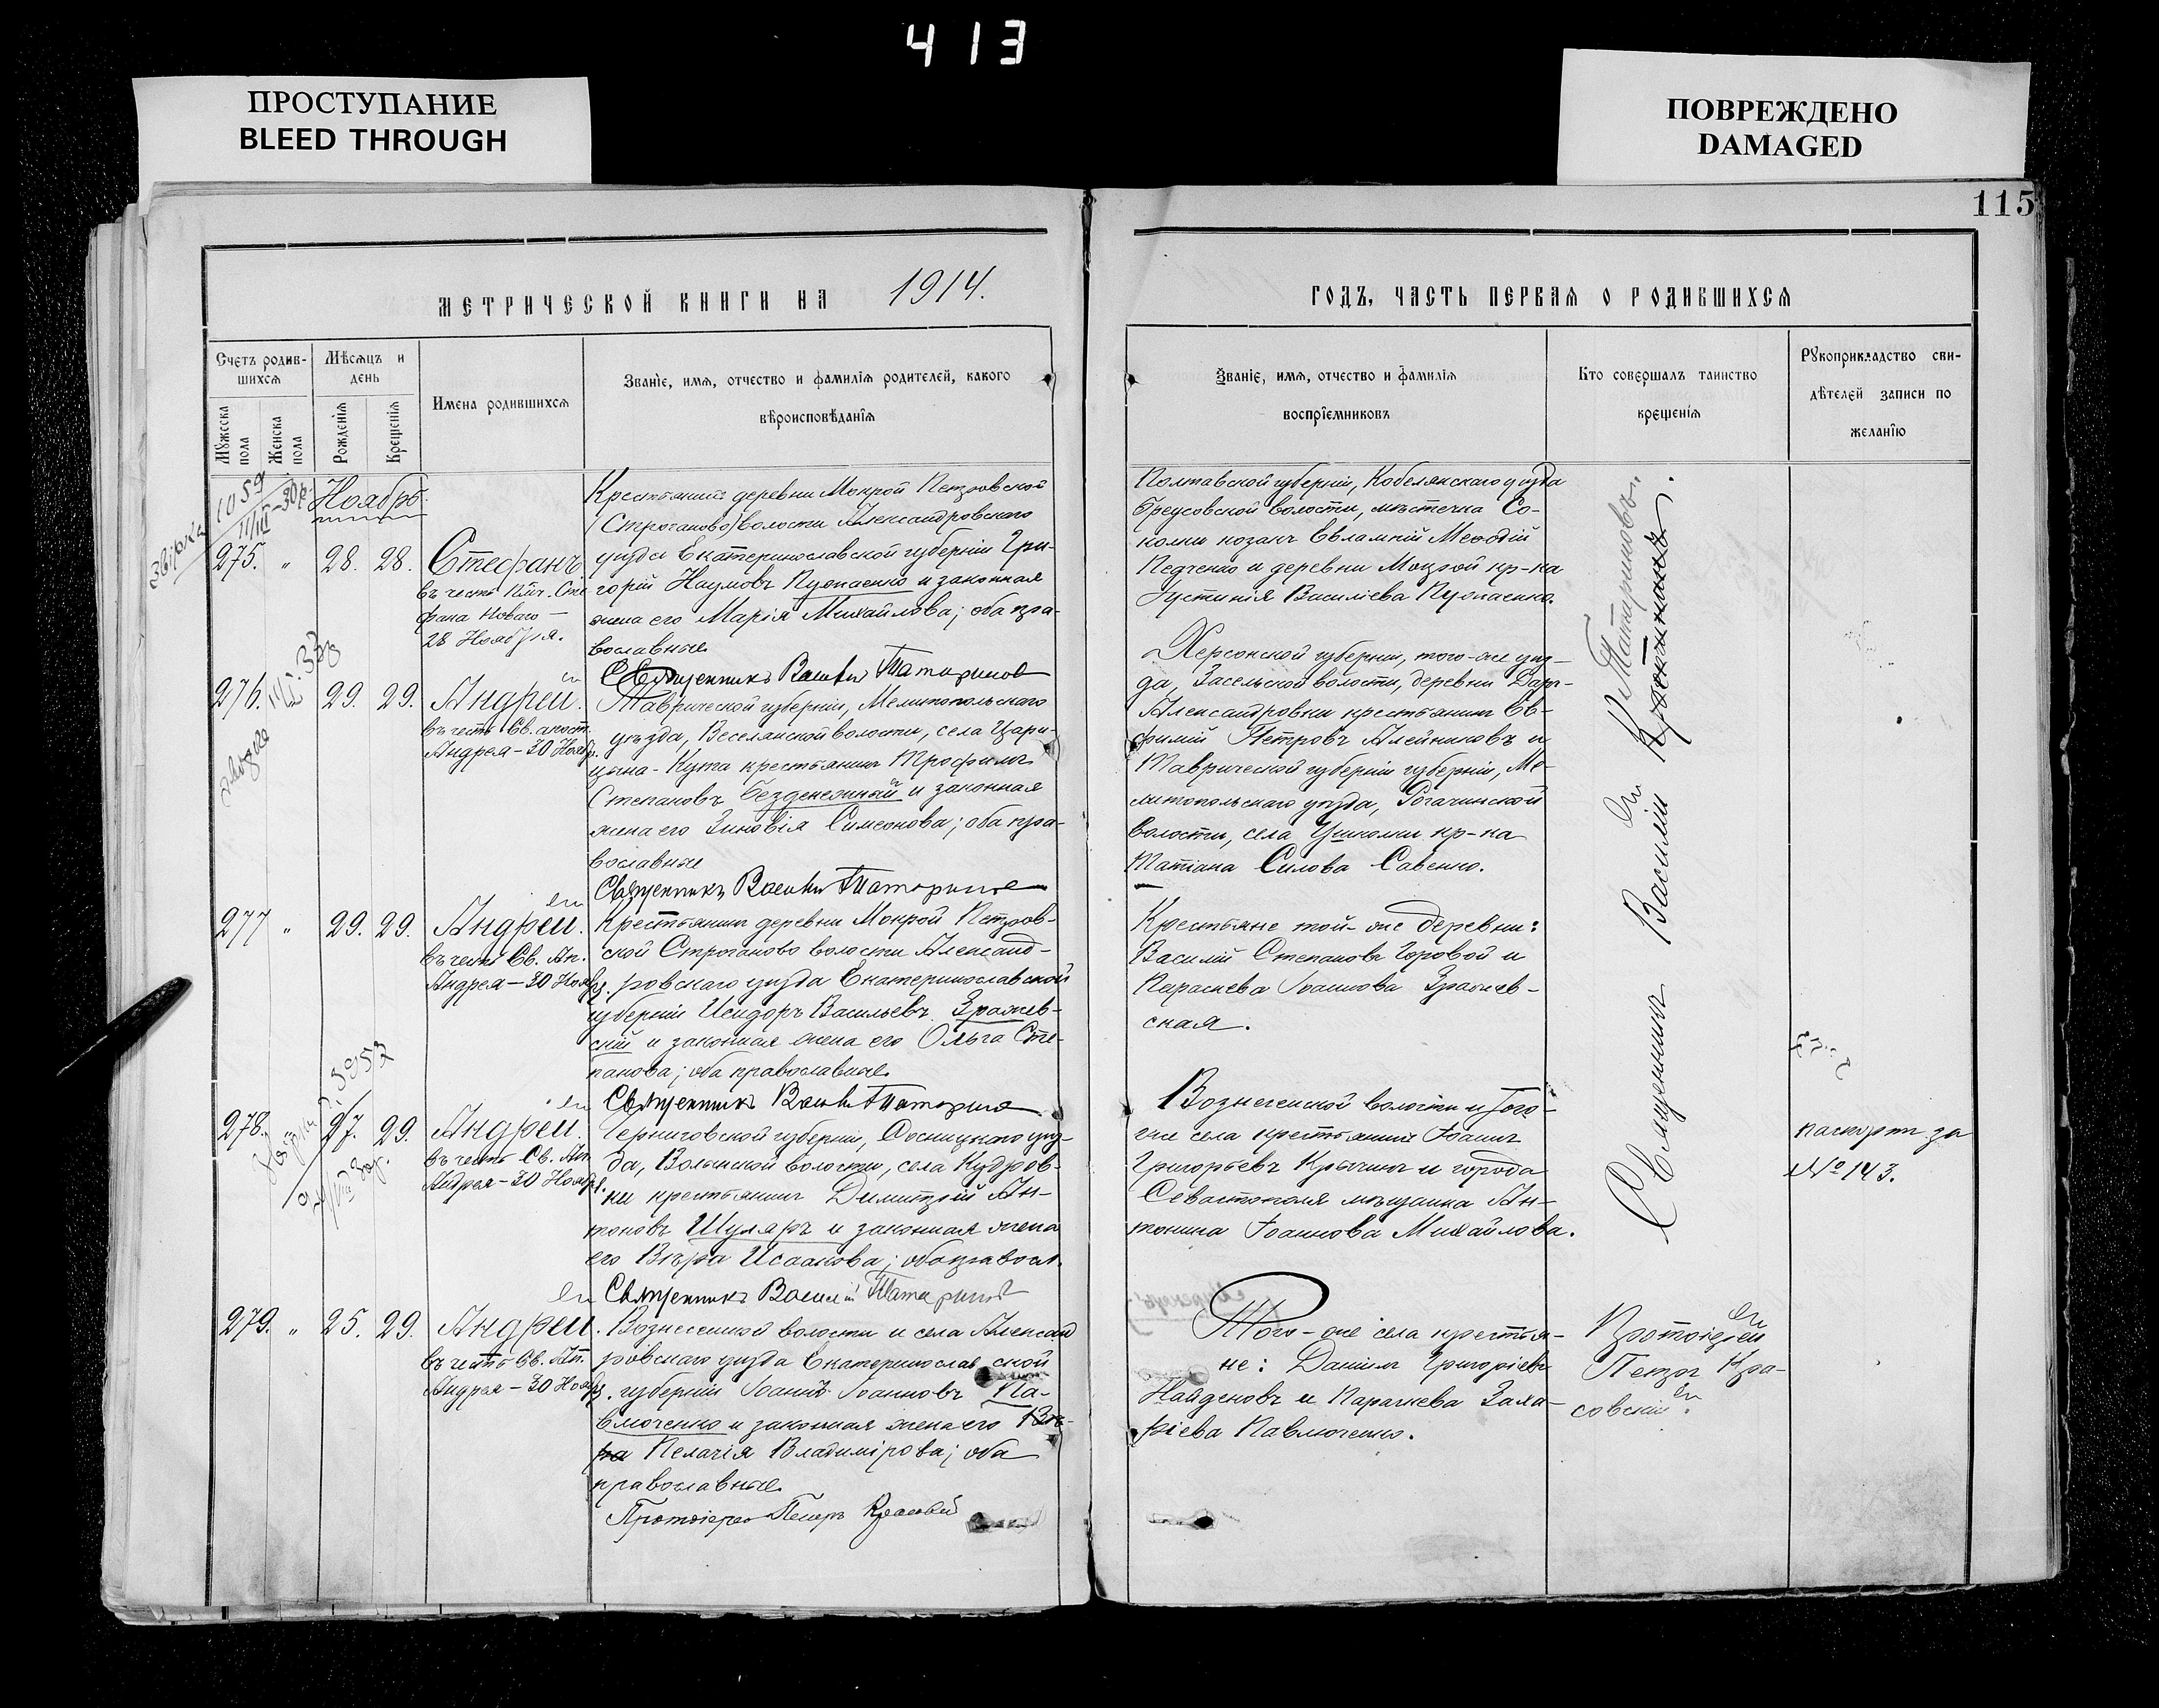 413
ПРОСТУПАНИЕ
BLEED THROUGH
ПОВРЕЖДЕНО
DAMAGED
115
МЕТРИЧЕСКОЙ КНИГИ НА 1914.
ГОДЪ, ЧАСТЬ ПЕРВАЯ О РОДИВШИХСЯ
Счетъ родив-
шихся
Мѣсяцъ и
день
Мужеска
пола
Женска
пола
Рожденія
Крещенія
Имена родившихся
Званіе, имя, отчество и фамилія родителей, какого
вѣроисповѣданія
Званіе, имя, отчество и фамилія
воспріемниковъ
Кто совершалъ таинство
крещенія
Рукоприкладство сви-
дѣтелей записи по
желанію
1059
Ноябрь.
275. " 28. 28.
Стефанъ
въ честь Св.
фана Новаго —
28 Ноября.
Крестьянинъ деревни Мокрой Петровской
(Строганово) волости Александровскаго
уѣзда Екатеринославской губерніи Гри-
горій Наумовъ и законная
жена его Марія Михайлова; оба пра-
вославные
Священникъ Василій Татариновъ
Полтавской губерніи, Кобелякскаго уѣзда
Бреусовской волости, мѣстечка Со-
колки козакъ Евлампій Меѳодій
Педченко и деревни Мокрой кр-ка
Іустинія Василіева
276. 29. 29.
Андрей.
въ честь Св. апост.
Андрея — 30 Нояб.
Таврической губерніи, Мелитопольскаго
уѣзда, Веселянской волости, села Цари-
цына-Кута крестьянинъ Трофимъ
Степановъ Безденежный и законная
жена его Зиновія Симеонова; оба пра-
вославные
Священникъ Василій Татариновъ
Херсонской губерніи, того-же уѣз-
да, Засельской волости, деревни Дарь-
Александровки крестьянинъ Ев-
фимій Петровъ Алейниковъ и
Таврической губерніи губерніи, Ме-
литопольскаго уѣзда, Рогачинской
волости, села Ушкалки кр-ка
Татіана Силова Савенко.
277 " 29. 29.
Андрей.
въ честь Св. Ап.
Андрея — 30 Нояб.
Крестьянинъ деревни Мокрой Петров-
ской Строганово волости Александ-
ровскаго уѣзда Екатеринославской
губерніи Исидоръ Васильевъ Зражев-
скій и законная жена его Ольга Сте-
панова; оба православные
Священникъ Василій Татариновъ
Крестьяне той-же деревни:
Василій Степановъ Горовой и
Параскева Іоаннова Зражев-
ская.
278. 27. 29.
Андрей.
въ честь Св. Ап.
Андрея — 30 Нояб.
Черниговской губерніи, Сосницкаго уѣз-
да, Волынской волости, села Кудров-
ки крестьянинъ Димитрій Ан-
тоновъ Шуляръ и законная жена
его Вѣра Исаакова; оба правосл.
Священникъ Василій Татариновъ
Вознесенской волости и того-
же села крестьянинъ Іоаннъ
Григорьевъ Крычинъ и города
Севастополя мѣщанка Ан-
тонина Іоаннова Михайлова.
паспортъ за
№ 143.
Священникъ Василій Татариновъ.
279. " 25. 29.
Андрей.
въ честь Св. Ап.
Андрея — 30 Нояб.
Вознесенской волости и села Александ
ровскаго уѣзда Екатеринославской
губерніи Іоаннъ Іоанновъ Па-
влюченко и законная жена его Вѣ-
ра Пелагія Владимірова; оба
православные.
Протоіерей Петръ Красовскій
Того-же села крестья-
не: Даніилъ Григоріевъ
Найденовъ и Параскева Заха-
ріева Павлюченко.
Протоіерей
Петръ Кра-
совскій.